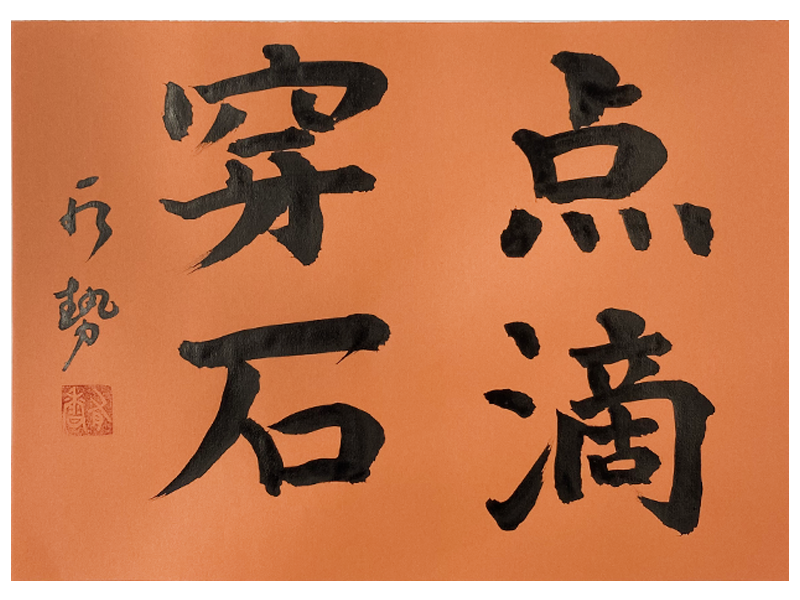 点滴
穿石
勢